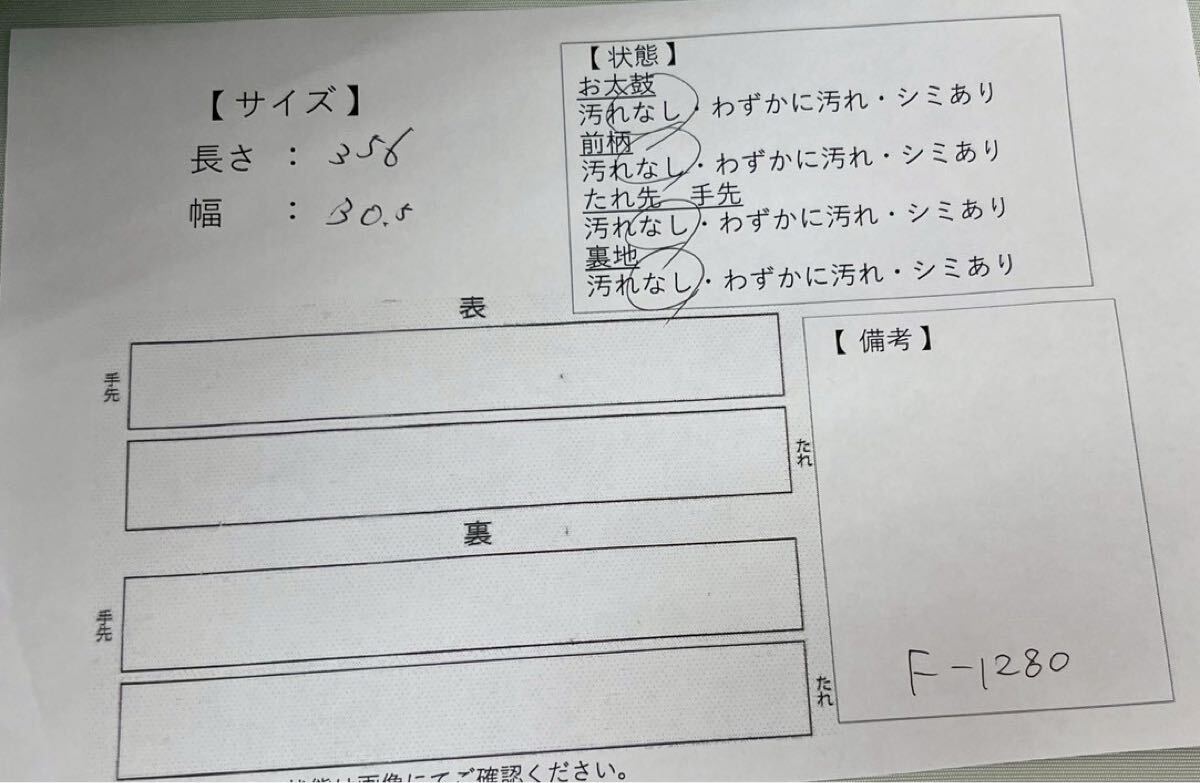 【 サイズ 】
長さ : 356
幅 : 30.5
【 状態 】
お太鼓
汚れなし・わずかに汚れ・シミあり
前柄
汚れなし・わずかに汚れ・シミあり
たれ先 手先
汚れなし・わずかに汚れ・シミあり
裏地
汚れなし・わずかに汚れ・シミあり
表
手先
たれ
裏
手先
たれ
【 備考 】
F-1280
状態は画像にてご確認ください。